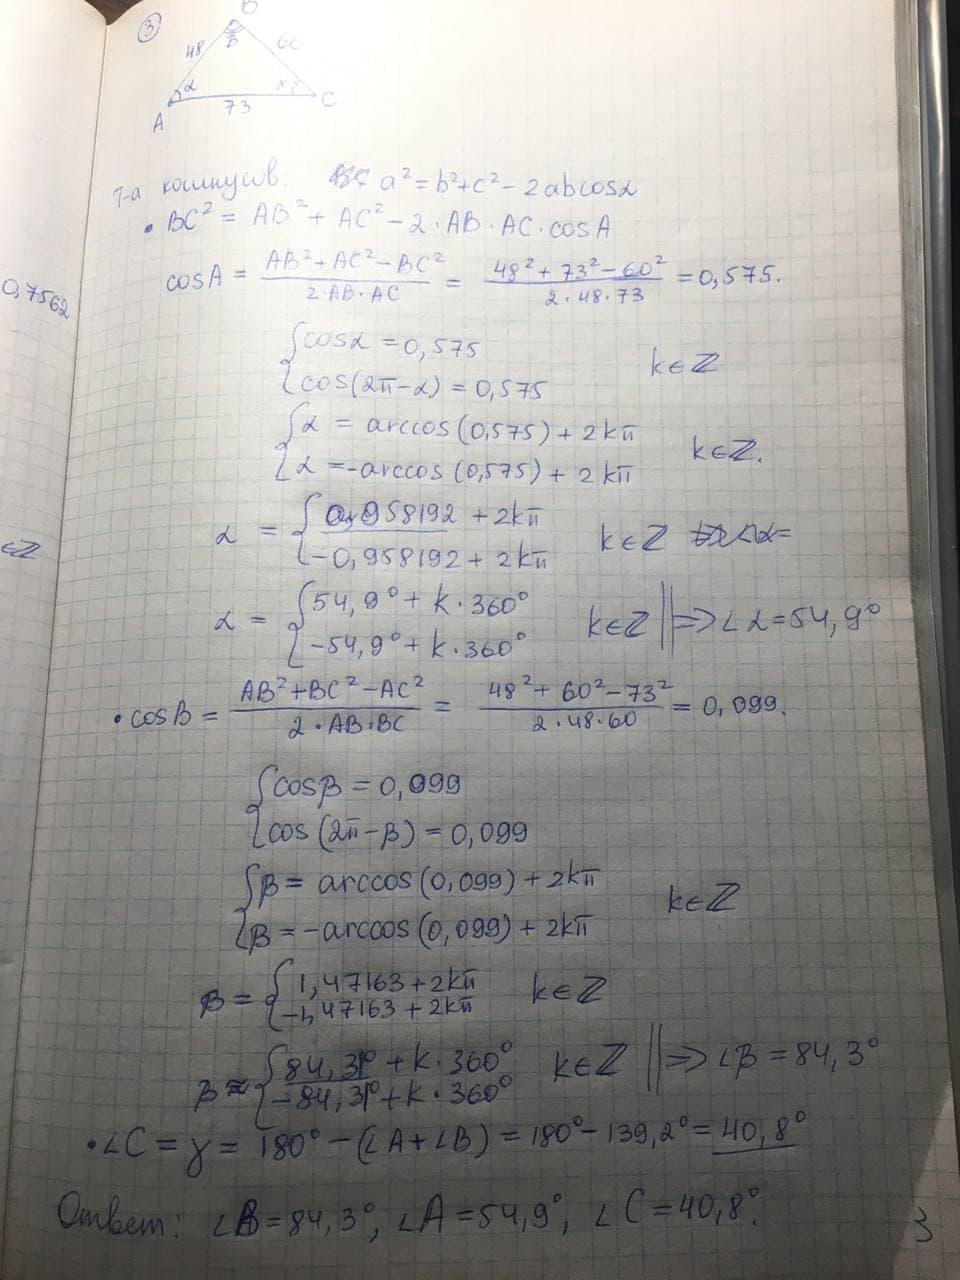 3
B
48
β
60
α
γ
A
73
C
Т-а косинусов: a² = b² + c² - 2abcosα
• BC² = AB² + AC² - 2·AB·AC·cosA
cosA = (AB² + AC² - BC²)/(2·AB·AC) = (48² + 73² - 60²)/(2·48·73) = 0,575.
0,7562
{cosα = 0,575
{cos(2π-α) = 0,575 k∈ℤ
{α = arccos(0,575) + 2kπ
{α = -arccos(0,575) + 2kπ k∈ℤ.
α = {0,958192 + 2kπ
{-0,958192 + 2kπ k∈ℤ
∈ℤ
α = {54,9° + k·360°
{-54,9° + k·360° k∈ℤ ‖ ⇒ ∠α = 54,9°
• cosB = (AB² + BC² - AC²)/(2·AB·BC) = (48² + 60² - 73²)/(2·48·60) = 0,099.
{cosβ = 0,099
{cos(2π-β) = 0,099
{β = arccos(0,099) + 2kπ
{β = -arccos(0,099) + 2kπ k∈ℤ
β = {1,47163 + 2kπ
{-1,47163 + 2kπ k∈ℤ
β ≈ {84,31° + k·360°
{-84,31° + k·360° k∈ℤ ‖ ⇒ ∠β = 84,3°
• ∠C = γ = 180° - (∠A + ∠B) = 180° - 139,2° = 40,8°
Ответ: ∠B = 84,3°, ∠A = 54,9°, ∠C = 40,8°.
3